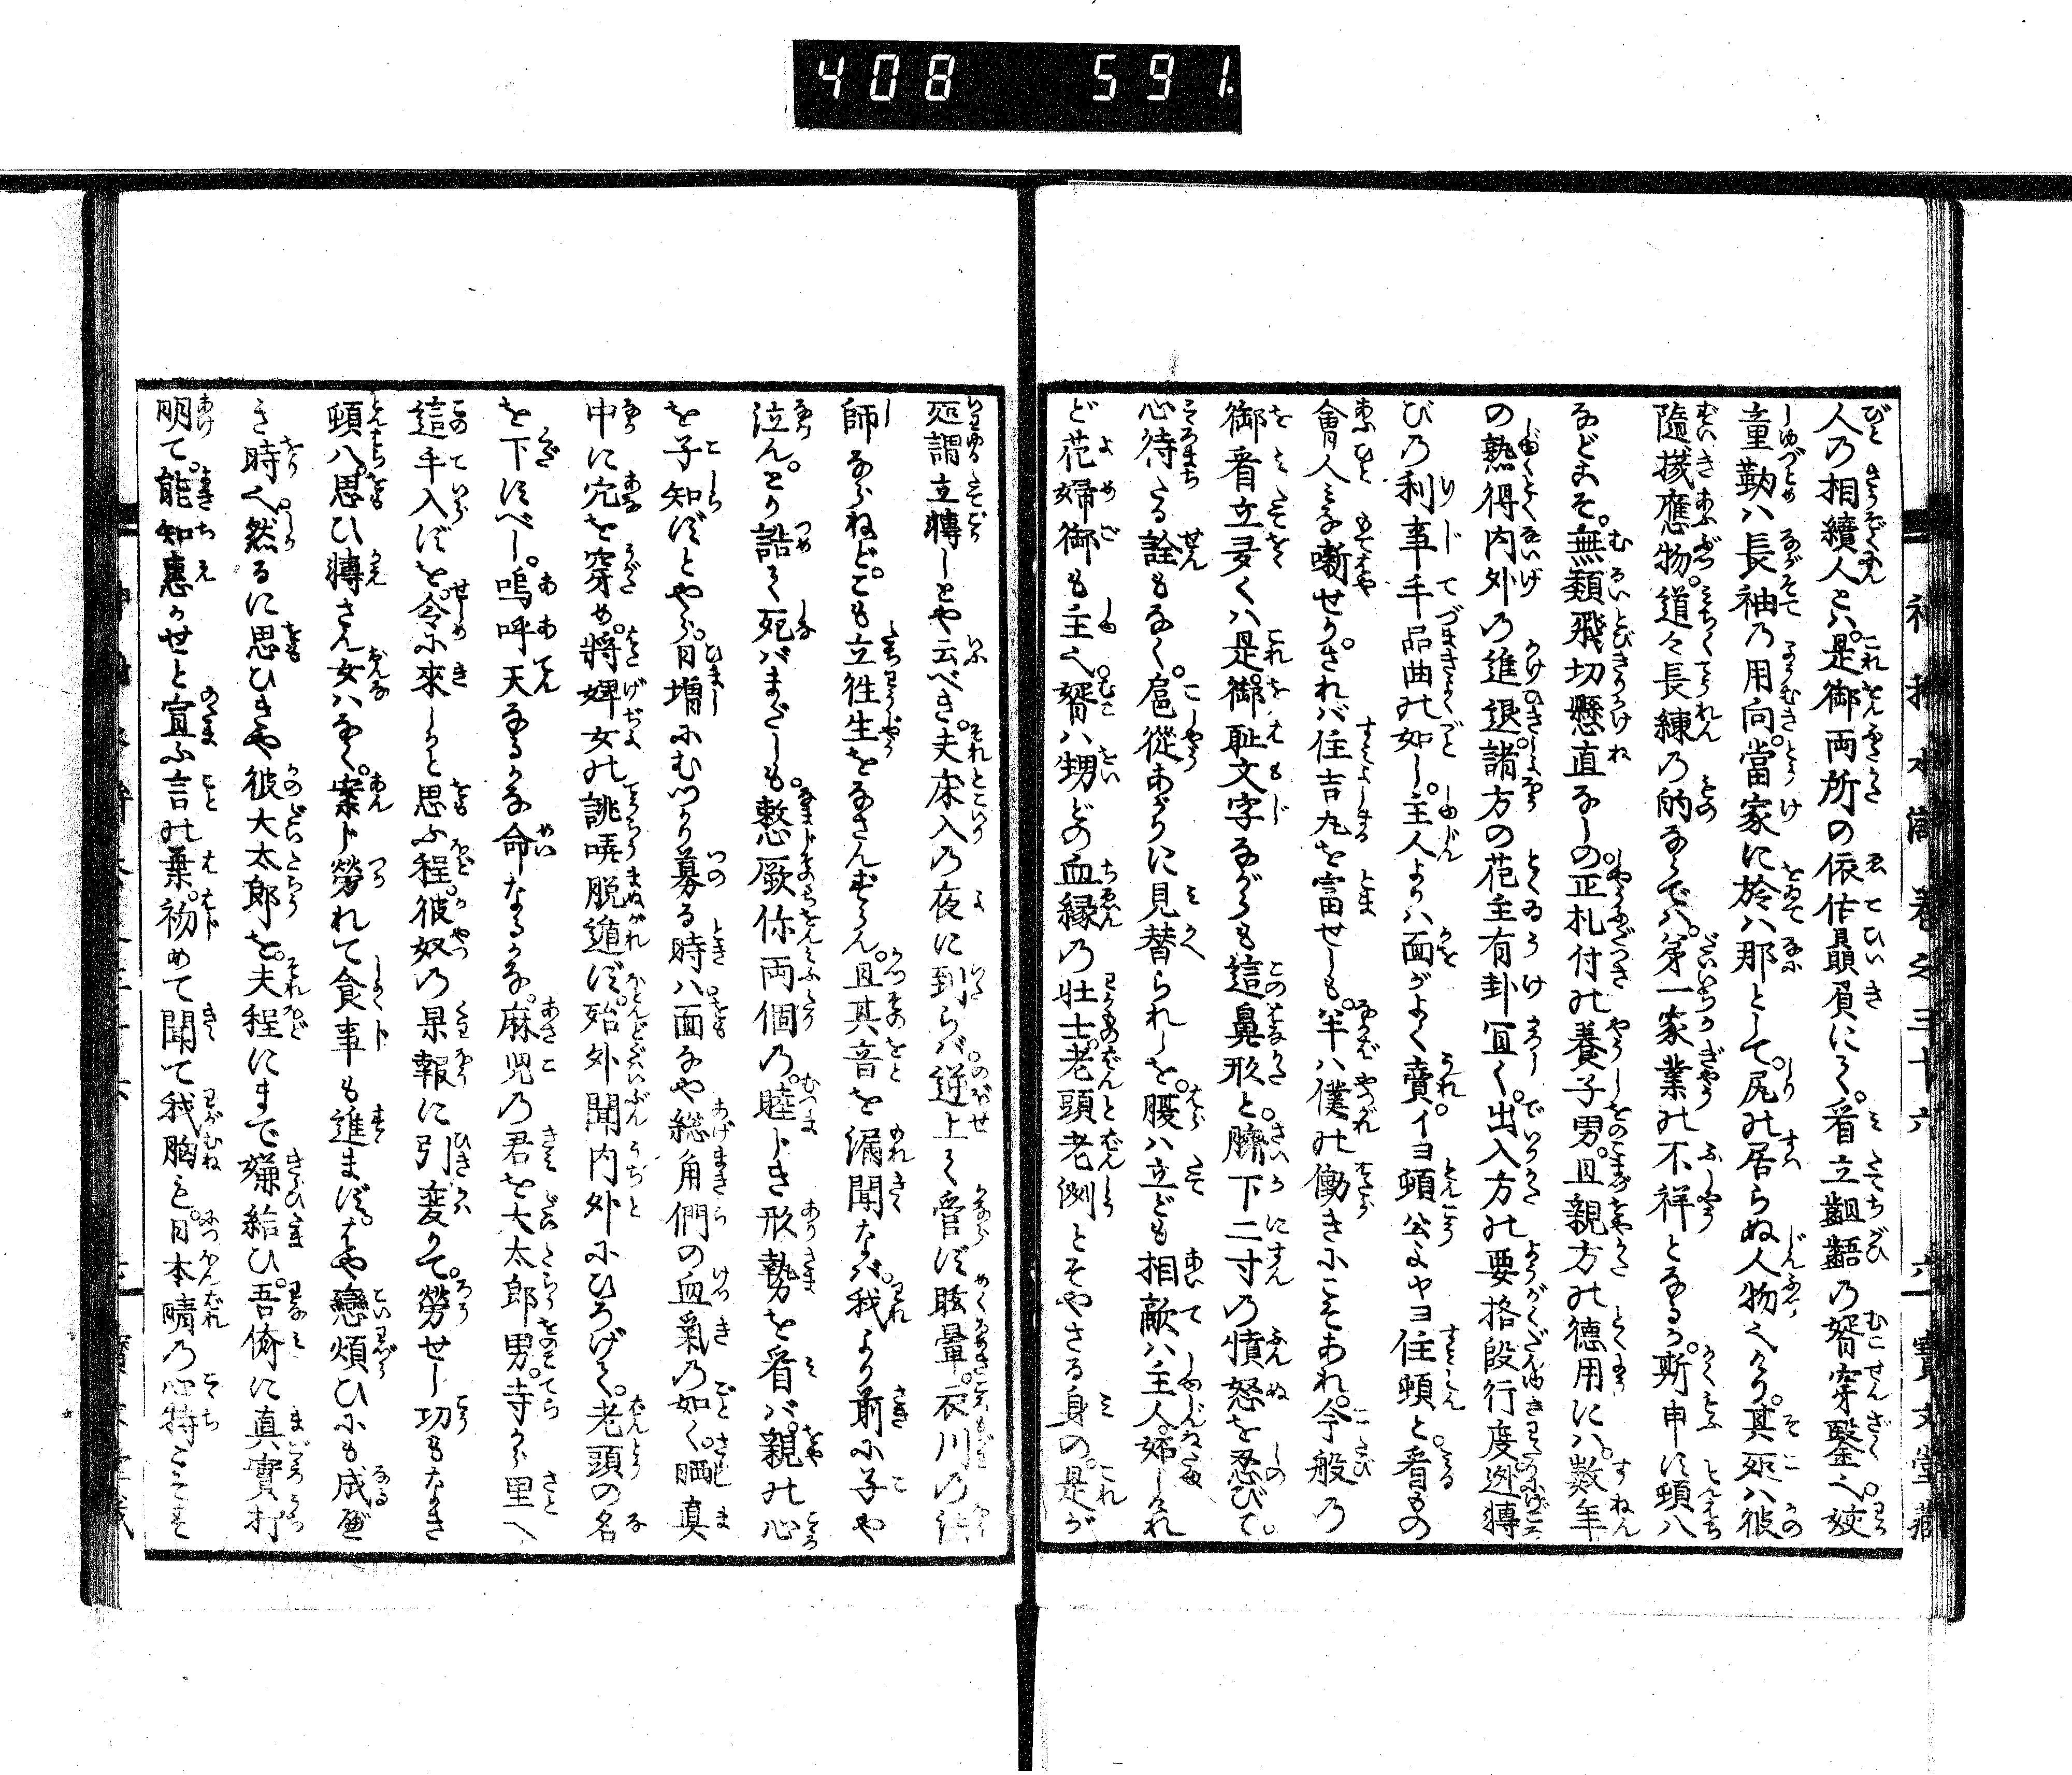 408 591.
人の相續人とハ。是御両所の依怙贔屓にて。看立齟齬の婿穿鑿也。姣
童勤ハ長袖の用向。當家に於ハ那として。尻の居らぬ人物也けり。其処ハ彼
隨機應物。道々長練の的ならでハ。第一家業の不祥となるか。斯申す頓八
などこそ。無類飛切懸直なしの。正札付の養子男。且親方の徳用にハ。数年
の熟得内外の進退。諸方の花主有卦冝く。出入方の要格段行度迯轉
びの利事手品曲の如し。主人よりハ面がよく賣。イヨ頓公よヤヨ住頓と看もの
會人こそ噺せり。されバ住吉丸を富せしも。半ハ僕の働きにこそあれ。今般の
御看立多くハ是。御耻文字ながらも這鼻形と。臍下二寸の憤怒を忍びて。
心待たる詮もなく。扈從あがりに見替られしを。腹ハ立ども相敵ハ主人。姉しけれ
ど花婦御も主也。婿ハ甥どの血縁の壮士。老頭老渕とそやさる身の。是が
処謂立轉しとや云べき。夫床入の夜に到らバ。逆上て管ず眩暈。衣川の
師ならねど。こも立往生をなさんずらん。且其音を漏聞なバ。我より前に子や
泣ん。とり詰て死バまだしも。憖厥你両個の。睦じき形勢を看バ。親の心
を子知ずとやら。日増にむつかり募る時ハ。面なや総角們の血氣の如く。晒真
中に穴を穿め。將婢女の誂哢脱遁ず。殆外聞内外にひろげて。老頭の名
を下すべし。嗚呼天なるかな命なるかな。麻児の君を大太郎男。寺から里へ
這手入ずを。令に來しかと思ふ程。彼奴の果報に引変りて。勞せし功もなき
頓八。思ひ轉さん女ハなく。案じ勞れて食事も進まず。はや戀煩ひにも成
き時也。然るに思ひきや彼大太郎を。夫程にまで嫌給ひ。吾儕に真實打
明て。能知惠かせと宣ふ言の葉。初めて聞て我胸も。日本晴の心持こそ